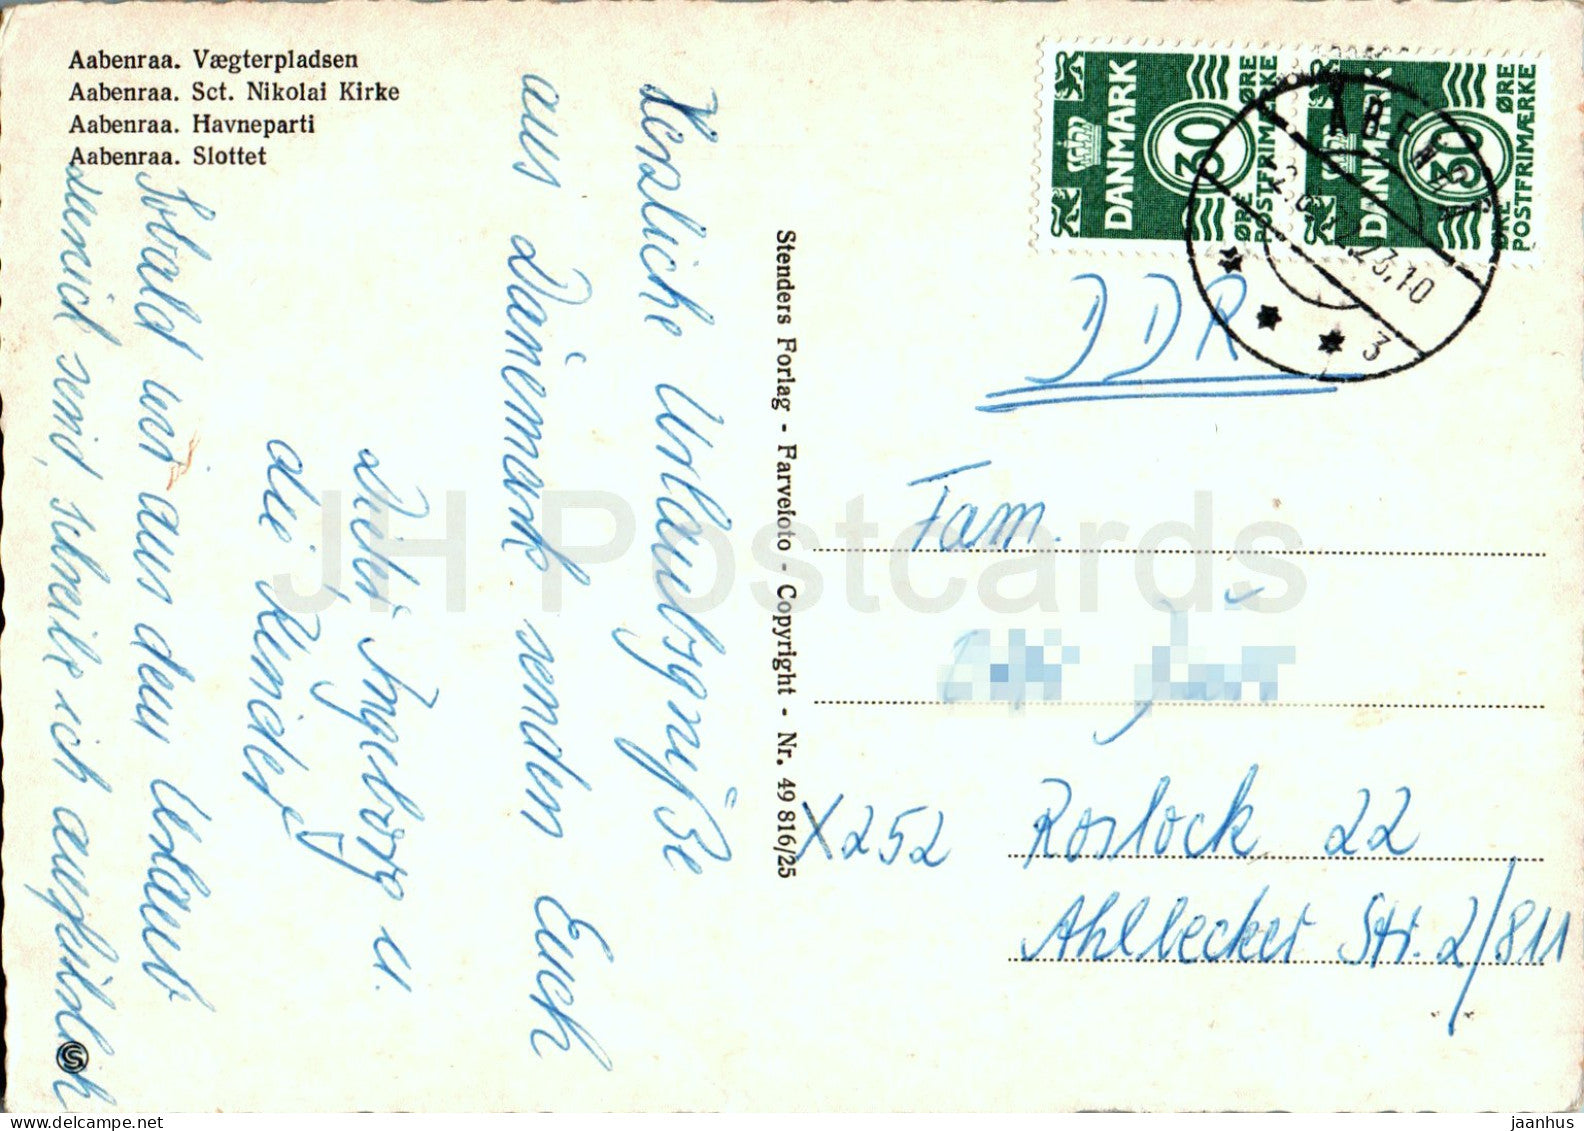 Aabenraa. Vægterpladsen
Aabenraa. Sct. Nikolai Kirke
Aabenraa. Havneparti
Aabenraa. Slottet
Herzliche Urlaubsgrüße
aus Dänemark senden Euch
Ingeborg u.
die Kinder
Sobald wir aus dem Urlaub
zurück sind, schreibe ich ausführlich
Stenders Forlag - Farvefoto - Copyright - Nr. 49 816/25
DANMARK
30
ØRE
ØRE
POSTFRIMÆRKE
DANMARK
30
ØRE
ØRE
POSTFRIMÆRKE
ÅBENRÅ
23.10
3
DDR
Fam.
X252 Rostock 22
Ahlbecker Str. 2/811
JH Postcards
jaanhus